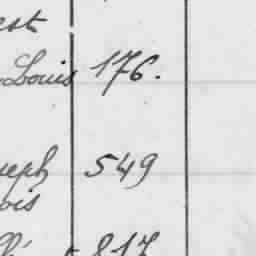 est
Louis 176.
seph 549
ois
817